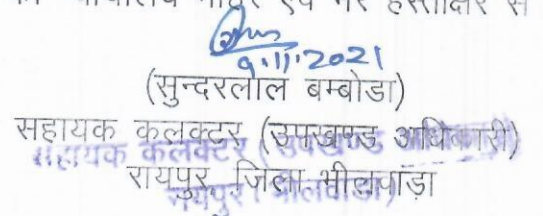 न्यायालय मोहर एवं मेरे हस्ताक्षर से
9.11.2021
(सुन्दरलाल बम्बोडा)
सहायक कलक्टर (उपखण्ड अधिकारी)
सहायक कलक्टर (उपखण्ड अधिकारी)
रायपुर, जिला भीलवाड़ा
रायपुर (भीलवाड़ा)